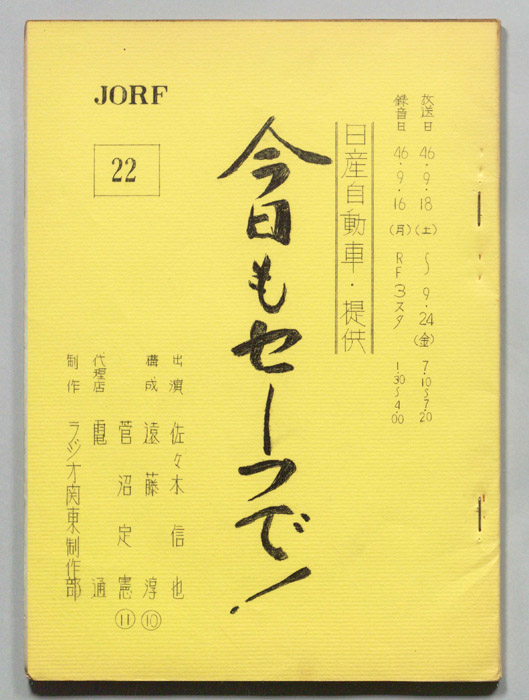 JORF
22
放送日 46・9・18（土）〜9・24（金）7.10〜7.20
録音日 46・9・16（月）RF3スタ 1.30〜4.00
日産自動車・提供
今日もセーフで！
出演 佐々木信也
構成 遠藤淳⑩
菅沼定憲⑪
代理店 電通
制作 ラジオ関東制作部